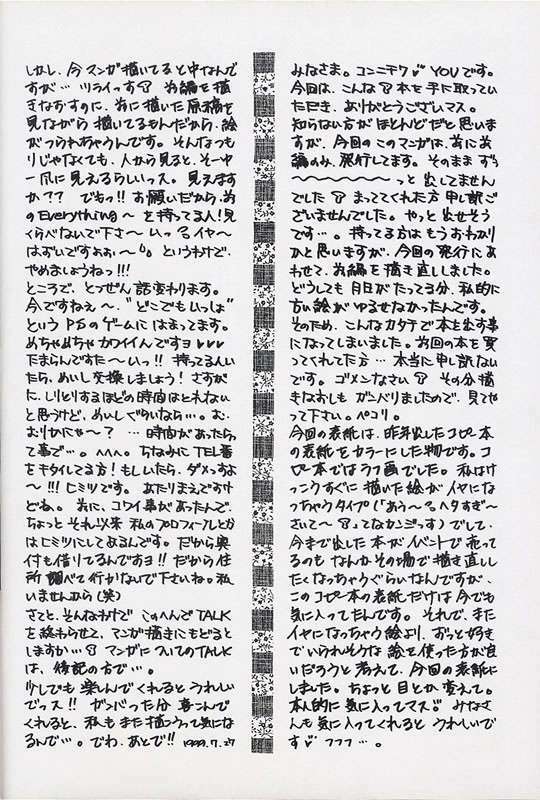 みなさま。コンニチワ♡ YOUです。
今回は、こんな本を手に取っていただき、ありがとうございマス。
知らない方がほとんどだと思いますが、今回のこのマンガは、前に前編のみ、発行してます。そのまま ずぅ
〜〜〜〜〜〜〜っと 出してません
でした まっててくれた方 申し訳ございませんでした。やっと出せそうです…。持ってる方はもうおわかりかと思いますが、今回の発行にあわせて、前編を描き直ししました。
どうしても 月日がたってる分、私的に古い絵がゆるせなかったんです。
そのため、こんなカタチで本を出す事になってしまいました。前回の本を買ってくれてた方… 本当に申し訳ないです。ゴメンなさい その分描きなおしも ガンバりましたので、見てやって下さい。ペコリ。
今回の表紙は、昨年出したコピー本の表紙をカラーにした物です。コピー本ではラフ画でした。私はけっこうすぐに描いた絵がイヤになっちゃうタイプ(「あぅ〜ヘタすぎ〜さいて〜」ってなカンジっす)でして、今まで出した本がイベントで売ってるのも なんかその場で描き直ししたくなっちゃうぐらいなんですが、このコピー本の表紙だけは今でも気に入ってたんです。それで、またイヤになっちゃう絵より、ずっと好きでいられそうな 絵を使った方が良いだろうと考えて、今回の表紙にしました。ちょっと目とか変えて。本人的に気に入ってマス♡ みなさんも気に入ってくれると うれしいです♡ フフフ…。
しかし、今マンガ描いてると中なんですが… ツライっす 前編を描きなおすのに、前に描いた原稿を見ながら 描いてるもんだから、絵がつられちゃうんです。そんなつもりじゃなくても、人から見ると、そー中一爪に見えるらしいっス。見えますか?? でもっ!! お願いだから、前のEverything〜を持ってる人!見くらべないで下さ〜いっ イヤ〜はずいですよぉ〜 というわけで、やめましょうねっ!!!
ところで、とつぜん話変わります。
今ですねぇ〜、"どこでもいっしょ"というPSのゲームに はまってます。めちゃめちゃカワイイんですヨ♡♡♡
たまらんですた〜いっ!! 持ってる人いたら、めいし交換しましょう! さすがに、しりとりするほどの時間はとれないと思うけど、めいしぐらいなら…。お、おりかにゃ〜? …時間があったらって事で…。^^^。ちなみに TEL番をキタイしてる方! もしいたら、ダメっすよ〜!!! ヒミツです。 あたりまえですけどね。 前に、コワイ事があったんで、ちょっと それ以来 私のプロフィールとかはヒミツにしてあるんです。だから奥付も借りてるんですヨ!! だから住所 調べて行かないで下さいねっ私いませんから(笑)
さてと、そんなわけで このへんでTALKを終わらせて、マンガ描きにもどるとしますか…。 マンガについてのTALKは、後記の方で…。
少しでも 楽しんでくれると うれしいでっス!! ガンバった分 喜こんでくれると、私もまた描こうって気になるんで…。でわ、あとで!! 1999.7.27